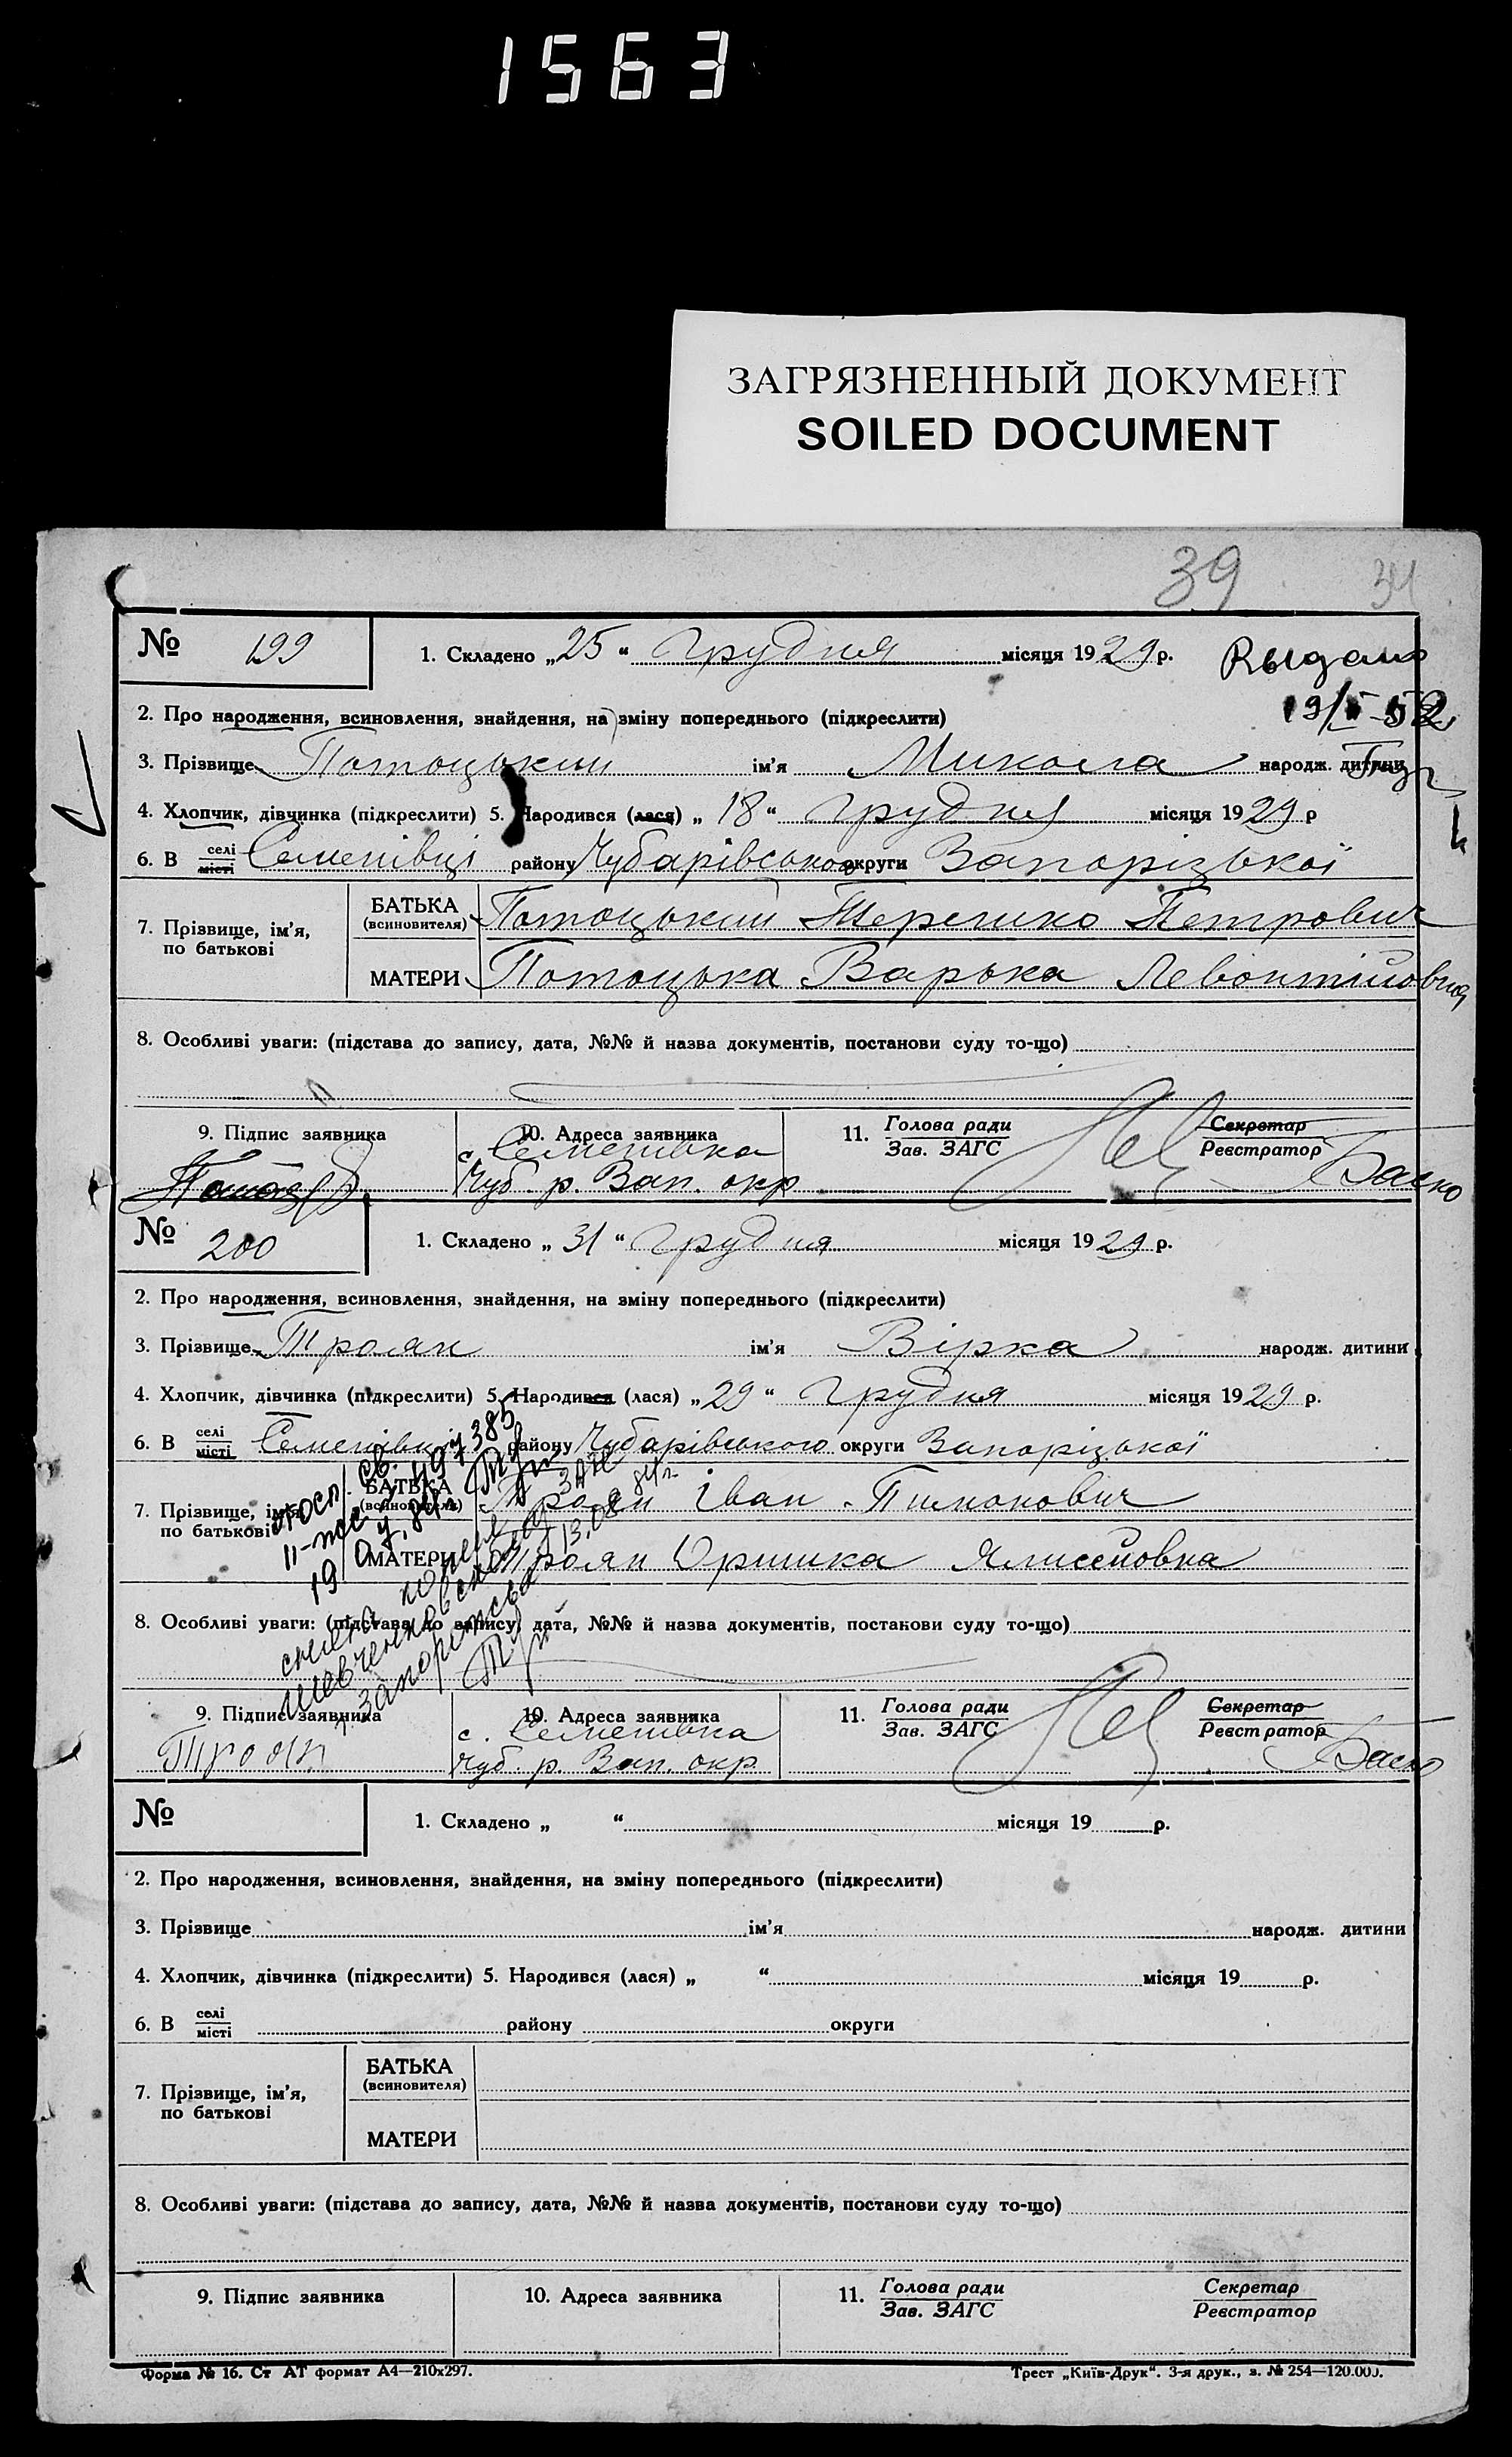 1563
ЗАГРЯЗНЕННЫЙ ДОКУМЕНТ
SOILED DOCUMENT
39 34
№ 199 1. Складено „25“ грудня місяця 1929 р. Выдано
2. Про народження, всиновлення, знайдення, на зміну попереднього (підкреслити)
3. Прізвище Потоцький ім'я Микола народж. дитини
4. Хлопчик, дівчинка (підкреслити) 5. Народився (лася) „18“ грудня місяця 1929 р
6. В селі місті Семенівці району Чубарівського округи Запорізької
7. Прізвище, ім'я, по батькові БАТЬКА (всиновителя) Потоцький Терешко Петрович
МАТЕРИ Потоцька Варька Левонтійовна
8. Особливі уваги: (підстава до запису, дата, №№ й назва документів, постанови суду то-що)
9. Підпис заявника 10. Адреса заявника 11. Голова ради Зав. ЗАГС Секретар Реєстратор
с. Семенівка
Чуб. р. Зап. окр Баско
№ 200 1. Складено „31“ грудня місяця 1929 р.
2. Про народження, всиновлення, знайдення, на зміну попереднього (підкреслити)
3. Прізвище Троян ім'я Вірка народж. дитини
4. Хлопчик, дівчинка (підкреслити) 5. Народився (лася) „29“ грудня місяця 1929 р.
6. В селі місті Семенівці району Чубарівського округи Запорізької
7. Прізвище, ім'я, по батькові БАТЬКА (всиновителя) Троян Іван Пимонович
МАТЕРИ Троян Оришка
8. Особливі уваги: (підстава до запису, дата, №№ й назва документів, постанови суду то-що)
9. Підпис заявника 10. Адреса заявника 11. Голова ради Зав. ЗАГС Секретар Реєстратор
Троян с. Семенівка
Чуб. р. Зап. окр. Баско
№ 1. Складено „ “ місяця 19 р.
2. Про народження, всиновлення, знайдення, на зміну попереднього (підкреслити)
3. Прізвище ім'я народж. дитини
4. Хлопчик, дівчинка (підкреслити) 5. Народився (лася) „ “ місяця 19 р.
6. В селі місті району округи
7. Прізвище, ім'я, по батькові БАТЬКА (всиновителя)
МАТЕРИ
8. Особливі уваги: (підстава до запису, дата, №№ й назва документів, постанови суду то-що)
9. Підпис заявника 10. Адреса заявника 11. Голова ради Зав. ЗАГС Секретар Реєстратор
Форма № 16. Ст АТ формат А4—210х297. Трест „Київ-Друк“. 3-я друк., з. № 254—120.000.